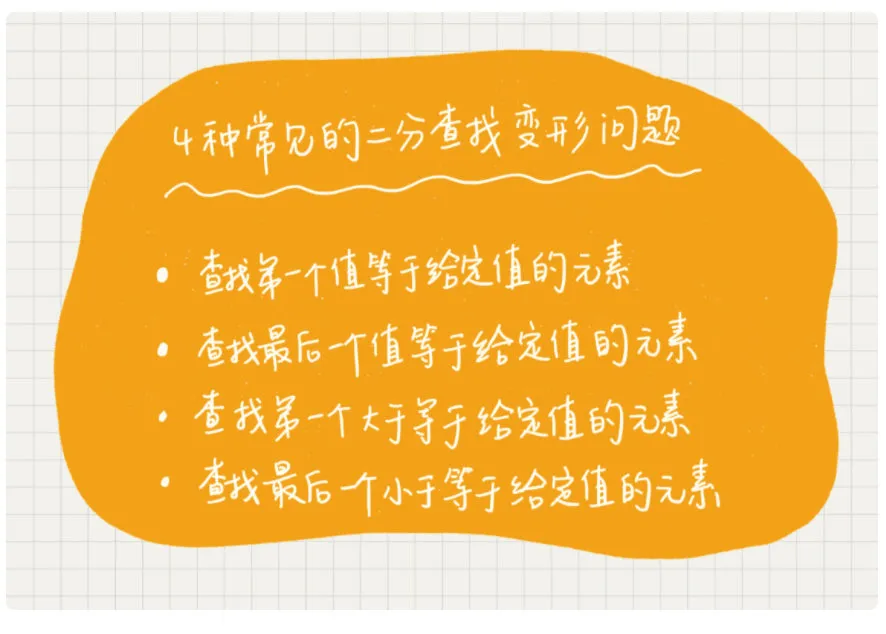 4种常见的二分查找变形问题
查找第一个值等于给定值的元素
查找最后一个值等于给定值的元素
查找第一个大于等于给定值的元素
查找最后一个小于等于给定值的元素